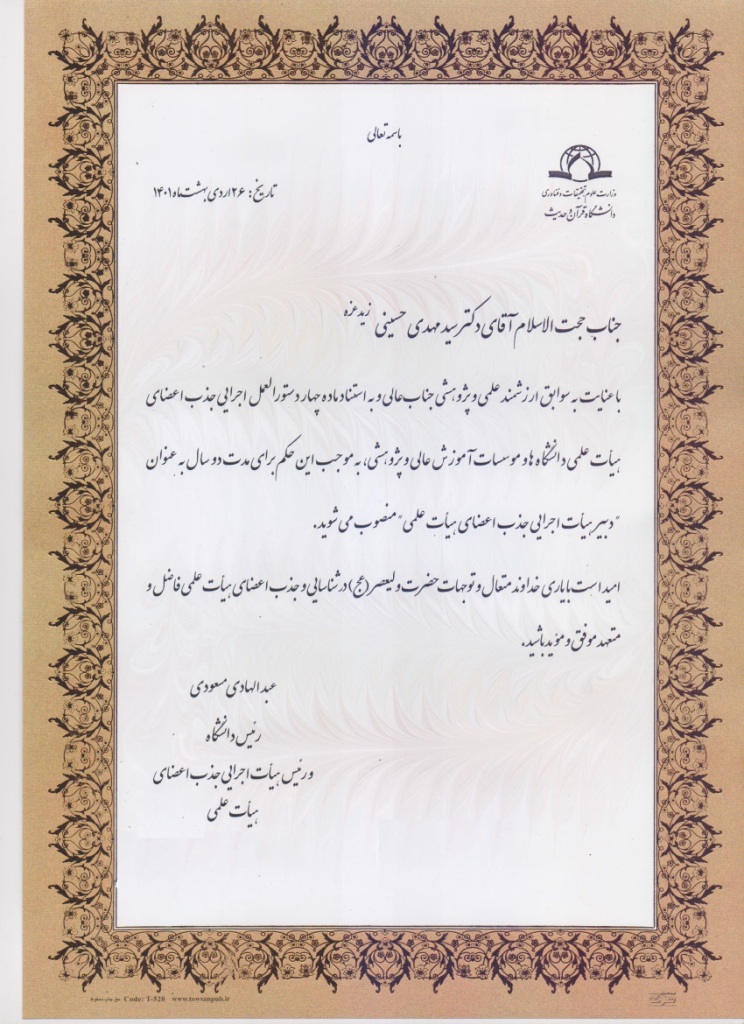 باسمه تعالی
وزارت علوم تحقیقات و فناوری
دانشگاه قرآن و حدیث
تاریخ: ۲۶ اردی بهشت ماه ۱۴۰۱
جناب حجت الاسلام آقای دکتر سید مهدی حسینی زید عزه
با عنایت به سوابق ارزشمند علمی و پژوهشی جناب عالی و به استناد ماده چهار دستورالعمل اجرایی جذب اعضای
هیأت علمی دانشگاه ها و موسسات آموزش عالی و پژوهشی، به موجب این حکم برای مدت دو سال به عنوان
"دبیر هیأت اجرایی جذب اعضای هیأت علمی" منصوب می شوید.
امید است با یاری خداوند متعال و توجهات حضرت ولیعصر (عج) در شناسایی و جذب اعضای هیأت علمی فاضل و
متعهد موفق و مؤید باشید.
عبدالهادی مسعودی
رئیس دانشگاه
و رئیس هیأت اجرایی جذب اعضای
هیأت علمی
حق چاپ محفوظ Code: T-528 www.towsanpub.ir